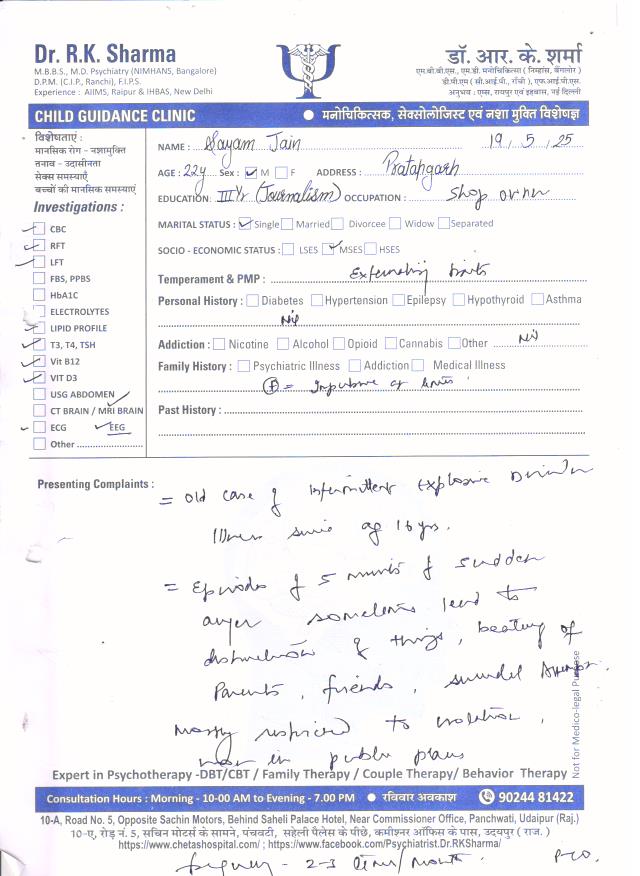 Dr. R.K. Sharma
M.B.B.S., M.D. Psychiatry (NIMHANS, Bangalore)
D.P.M. (C.I.P., Ranchi), F.I.P.S.
Experience : AIIMS, Raipur & IHBAS, New Delhi
डॉ. आर. के. शर्मा
एम.बी.बी.एस., एम.डी. मनोचिकित्सा ( निम्हांस, बैंगलोर )
डी.पी.एम ( सी.आई.पी., राँची ), एफ.आई.पी.एस.
अनुभव : एम्स, रायपुर एवं इहबास, नई दिल्ली
CHILD GUIDANCE CLINIC ● मनोचिकित्सक, सेक्सोलोजिस्ट एवं नशा मुक्ति विशेषज्ञ
विशेषताएं :
मानसिक रोग - नशामुक्ति
तनाव - उदासीनता
सेक्स समस्याएँ
बच्चों की मानसिक समस्याएं
Investigations :
CBC
RFT
LFT
FBS, PPBS
HbA1C
ELECTROLYTES
LIPID PROFILE
T3, T4, TSH
Vit B12
VIT D3
USG ABDOMEN
CT BRAIN / MRI BRAIN
ECG EEG
Other
NAME : Sayam Jain 19, 5, 25
AGE : 22y Sex : M F ADDRESS : Pratapgarh
EDUCATION: III Yr (Journalism) OCCUPATION : Shop owner
MARITAL STATUS : Single Married Divorcee Widow Separated
SOCIO - ECONOMIC STATUS : LSES MSES HSES
Temperament & PMP : traits
Personal History : Diabetes Hypertension Epilepsy Hypothyroid Asthma
Nil
Addiction : Nicotine Alcohol Opioid Cannabis Other Nil
Family History : Psychiatric Illness Addiction Medical Illness
Past History :
Presenting Complaints :
= Old case of Intermittent Explosive Disorder
Illness since age 16 yrs.
= Episodes of 5 minutes of sudden
anger sometimes lead to
destruction of things, beating of
Parents, friends, suicidal Attempt.
mostly restricted to
in public places
Not for Medico-legal Purpose
Expert in Psychotherapy -DBT/CBT / Family Therapy / Couple Therapy/ Behavior Therapy
Consultation Hours : Morning - 10-00 AM to Evening - 7.00 PM ● रविवार अवकाश 90244 81422
10-A, Road No. 5, Opposite Sachin Motors, Behind Saheli Palace Hotel, Near Commissioner Office, Panchwati, Udaipur (Raj.)
10-ए, रोड़ नं. 5, सचिन मोटर्स के सामने, पंचवटी, सहेली पैलेस के पीछे, कमीश्नर ऑफिस के पास, उदयपुर ( राज. )
https://www.chetashospital.com/ ; https://www.facebook.com/Psychiatrist.Dr.RKSharma/
frequency - 2-3 times/month. P.T.O.